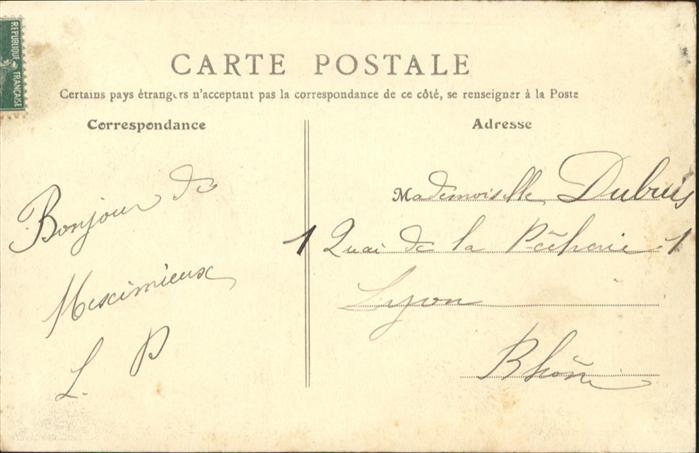 REPUBLIQUE FRANÇAISE
CARTE POSTALE
Certains pays étrangers n'acceptant pas la correspondance de ce côté, se renseigner à la Poste
Correspondance
Bonjour de
Meximieux
L. P
Adresse
Mademoiselle Dubuis
1 Quai de la Pêcherie 1
Lyon
Rhône